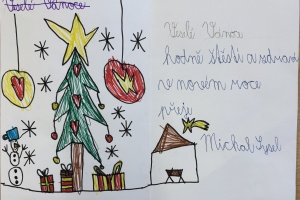 Veselé Vánoce
Veselé Vánoc
hodně štěstí a zdraví
v novém roce
přeje
Michal